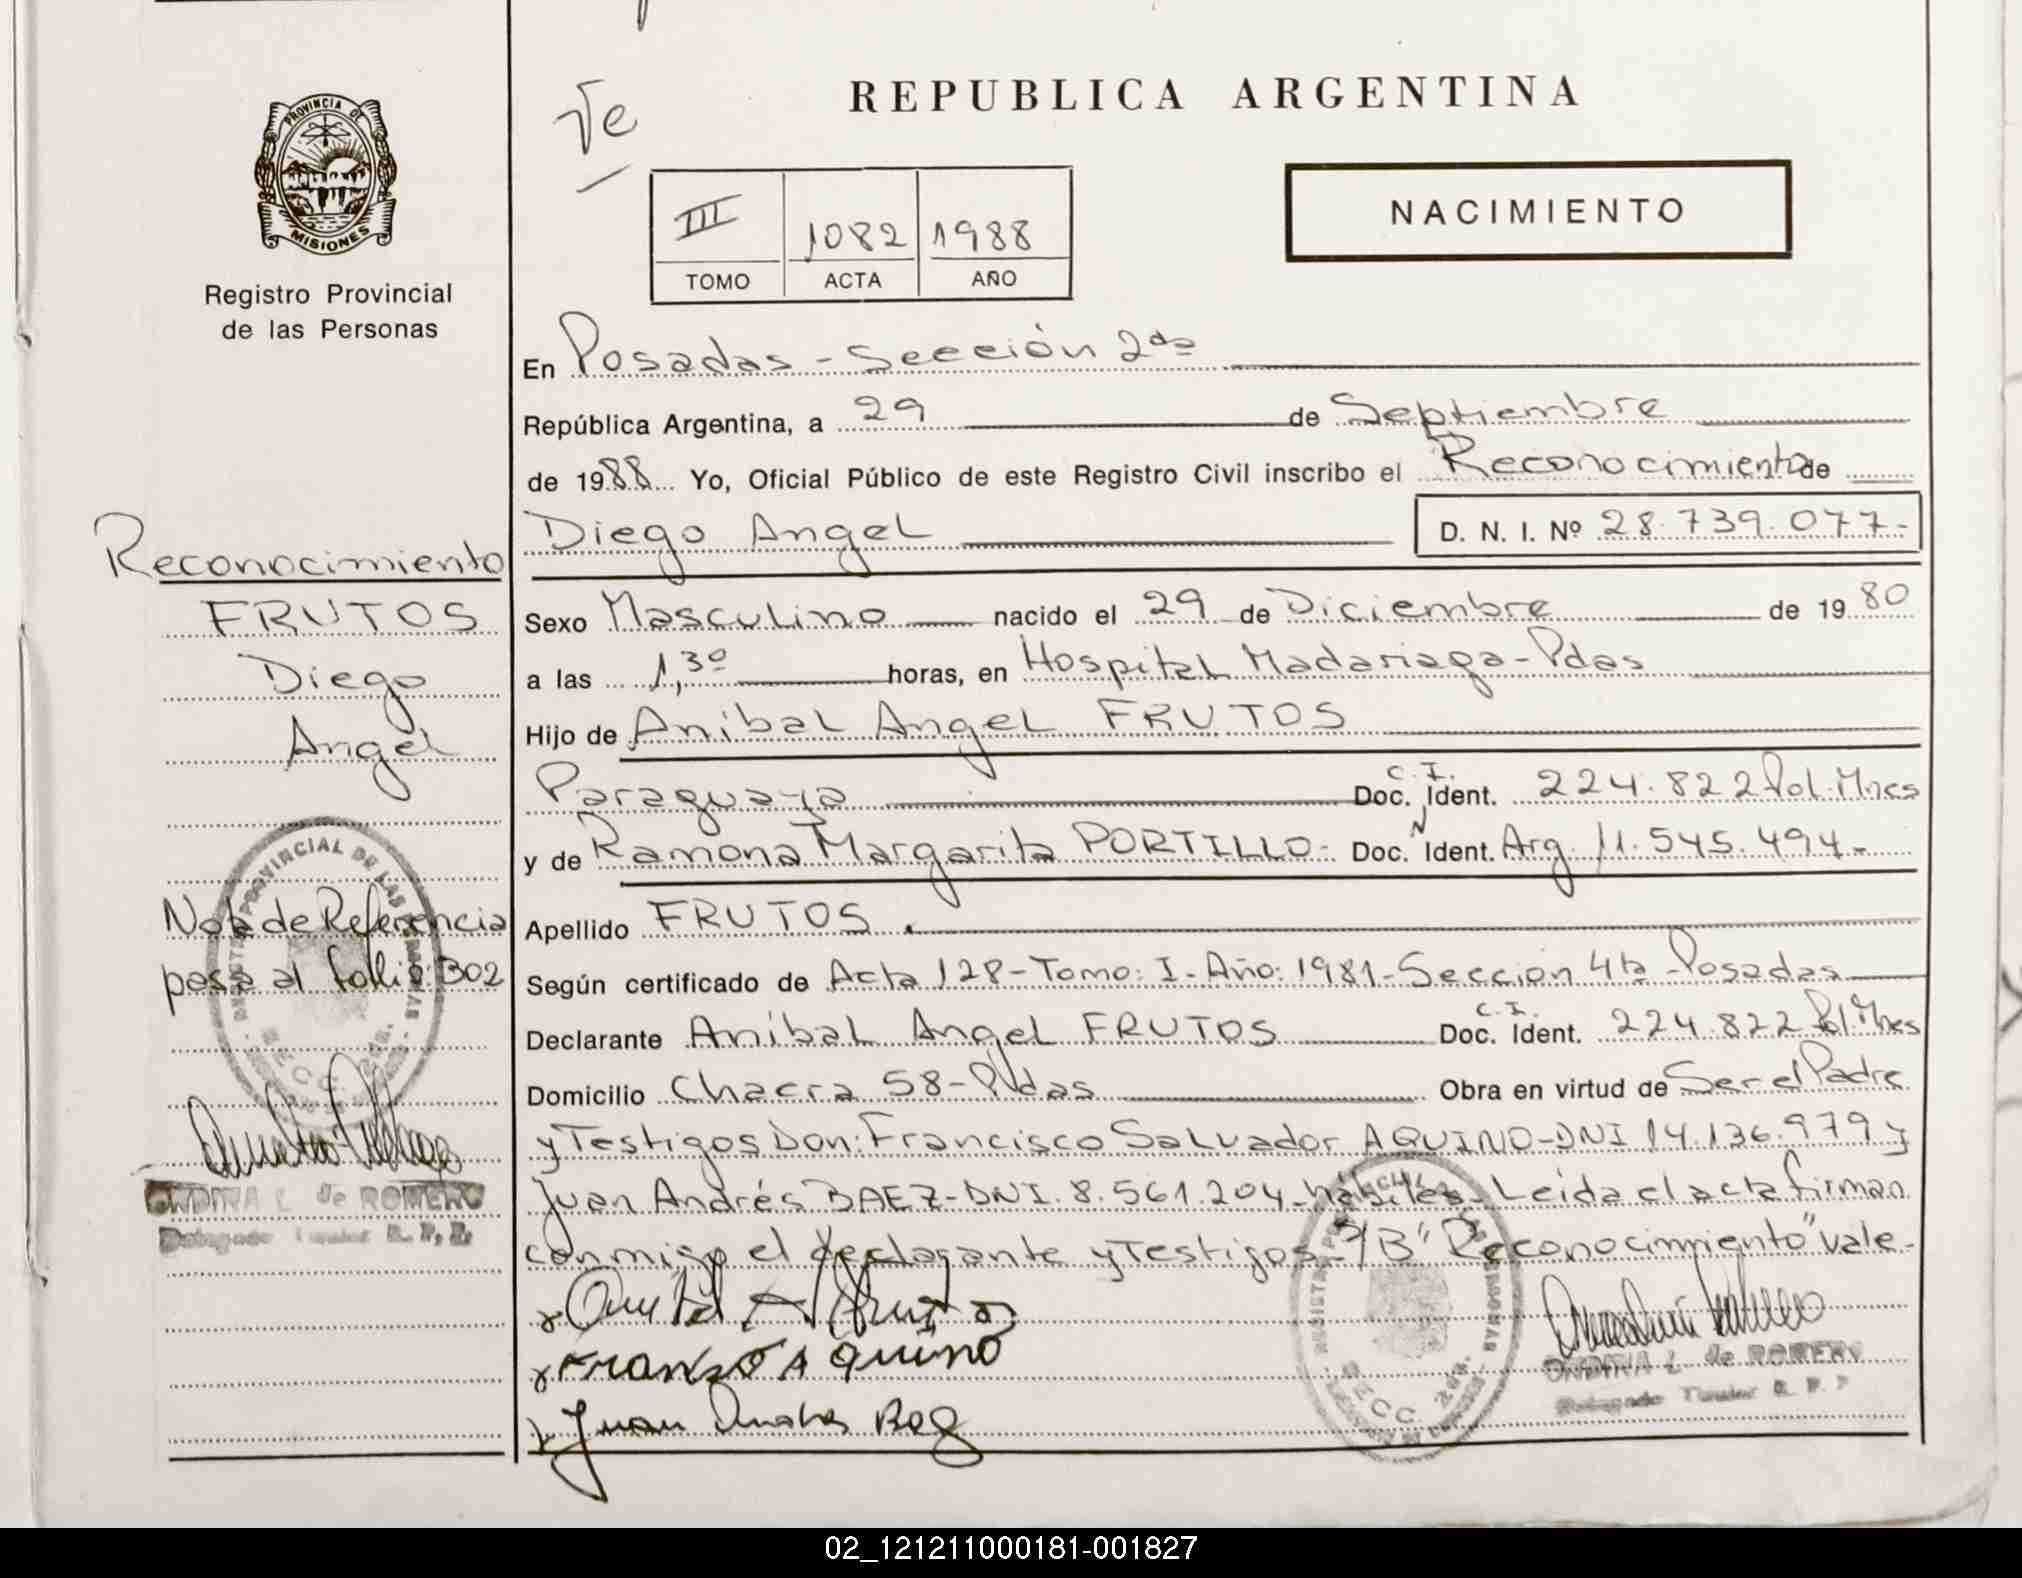 REPUBLICA ARGENTINA
Ve
PROVINCIA DE
MISIONES
Registro Provincial
de las Personas
III 1082 1988
TOMO ACTA AÑO
NACIMIENTO
En Posadas - Sección 2da
República Argentina, a 29 de Septiembre
de 1988 Yo, Oficial Público de este Registro Civil inscribo el Reconocimiento de
Diego Angel D. N. I. Nº 28.739.077-
Sexo Masculino nacido el 29 de Diciembre de 1980
a las 1,30 horas, en Hospital Madariaga - Pdas
Hijo de Anibal Angel FRUTOS
C. I.
Paraguaya Doc. Ident. 224.822 Pol. Mnes
N
y de Ramona Margarita PORTILLO- Doc. Ident. Arg. 11.545.494-
Apellido FRUTOS.
Según certificado de Acta 128 - Tomo: I - Año: 1981 - Seccion 4ta - Posadas
C. I.
Declarante Aníbal Angel FRUTOS Doc. Ident. 224.822 Pol. Mnes
Domicilio Chacra 58 - Pdas Obra en virtud de Ser el Padre
y Testigos Don: Francisco Salvador AQUINO - DNI 14.136.979 y
Juan Andrés BAEZ - DNI. 8.561.204 - hábiles - Leida el acta firman
conmigo el declarante y Testigos - S/B "Reconocimiento" vale-
Reconocimiento
FRUTOS
Diego
Angel
Nota de Referencia
pasa al folio 302
REGISTRO PROVINCIAL DE LAS PERSONAS
SECC. 2da.
ONDINA L. de ROMERO
Delegado Titular R. P. P.
Franco Aquino
Juan Andres Baez
REGISTRO PROVINCIAL DE LAS PERSONAS
SECC. 2da.
ONDINA L. de ROMERO
Delegado Titular R. P. P.
02_121211000181-001827